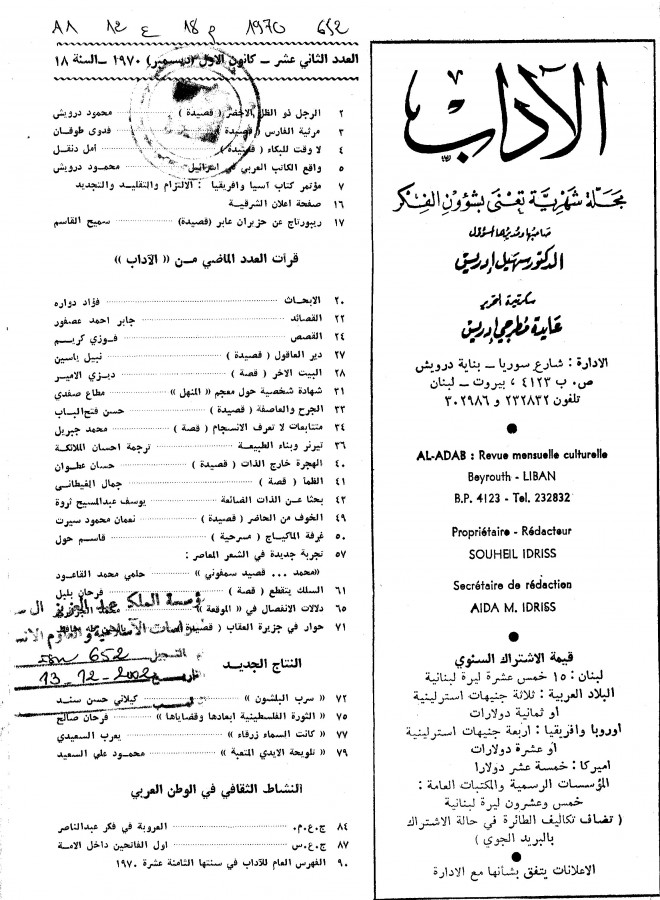 A1 12 ع 18 م 1970 652
العدد الثاني عشر – كانون الاول (ديسمبر) ١٩٧٠ – السنة ١٨
٢ الرجل ذو الظل الاخضر ( قصيدة ) محمود درويش
٣ مرثية الفارس ( قصيدة ) فدوى طوقان
٤ لا وقت للبكاء ( قصيدة ) أمل دنقل
٥ واقع الكاتب العربي في اسرائيل محمود درويش
٧ مؤتمر كتاب آسيا وافريقيا : الالتزام والتقليد والتجديد
١٦ صفحة اعلان الشرقية
١٧ ريبورتاج عن حزيران عابر (قصيدة) سميح القاسم
قرأت العدد الماضي من « الآداب »
٢٠ الابحاث فؤاد دواره
٢٢ القصائد جابر احمد عصفور
٢٤ القصص فوزي كريم
٢٧ دير العاقول ( قصيدة ) نبيل ياسين
٢٨ البيت الاخر ( قصة ) ديزي الامير
٣١ شهادة شخصية حول معجم « المنهل » مطاع صفدي
٣٣ الجرح والعاصفة ( قصيدة ) حسن فتح الباب
٣٤ متتابعات لا تعرف الانسجام ( قصة ) محمد جبريل
٣٦ تيرنر وبناء الطبيعة ترجمة احسان الملائكة
٤٠ الهجرة خارج الذات ( قصيدة ) حسان عطوان
٤١ الظمأ ( قصة ) جمال الغيطاني
٤٣ بحثا عن الذات الضائعة يوسف عبدالمسيح ثروة
٤٩ الخوف من الحاضر ( قصيدة ) نعمان محمود سيرت
٥٠ غرفة الماكياج ( مسرحية ) قاسم حول
٥٧ تجربة جديدة في الشعر المعاصر :
«محمد ... قصيد سمفوني» حلمي محمد القاعود
٦١ السلك ينقطع ( قصة ) فرحان بلبل
٦٥ دلالات الانفصال في « الموقعة » محمد
٧١ حوار في جزيرة العقاب ( قصيدة حافظ
مؤسسة الملك عبد العزيز آل س
اسات الاسلامية والعلوم الانس
التسجيل 652
13-12-2002
النتاج الجديد
٧٢ « سرب البلشون » كيلاني حسن سند
٧٥ « الثورة الفلسطينية ابعادها وقضاياها » فرحان صالح
٧٧ « كانت السماء زرقاء » يعرب السعيدي
٧٩ « تلويحة الايدي المتعبة » محمود علي السعيد
النشاط الثقافي في الوطن العربي
٨٤ ج.ع.م. العروبة في فكر عبدالناصر
٨٧ ج.ع.س اول الفاتحين داخل الامة
٩٠ الفهرس العام للآداب في سنتها الثامنة عشرة ١٩٧٠
الآداب
مجلة شهرية تعنى بشؤون الفكر
صاحبها ومديرها المسؤول
الدكتور سهيل ادريس
سكرتيرة التحرير
عايدة مطرجي ادريس
الادارة : شارع سوريا – بناية درويش
ص. ب ٤١٢٣ ، بيروت – لبنان
تلفون ٢٣٢٨٣٢ و ٣٠٢٩٨٦
AL-ADAB : Revue mensuelle culturelle
Beyrouth - LIBAN
B.P. 4123 - Tel. 232832
Propriétaire - Rédacteur
SOUHEIL IDRISS
Secrétaire de rédaction
AIDA M. IDRISS
قيمة الاشتراك السنوي
لبنان : ١٥ خمس عشرة ليرة لبنانية
البلاد العربية : ثلاثة جنيهات استرلينية
او ثمانية دولارات
اوروبا وافريقيا : اربعة جنيهات استرلينية
او عشرة دولارات
اميركا : خمسة عشر دولارا
المؤسسات الرسمية والمكتبات العامة :
خمس وعشرون ليرة لبنانية
( تضاف تكاليف الطائرة في حالة الاشتراك
بالبريد الجوي )
الاعلانات يتفق بشأنها مع الادارة